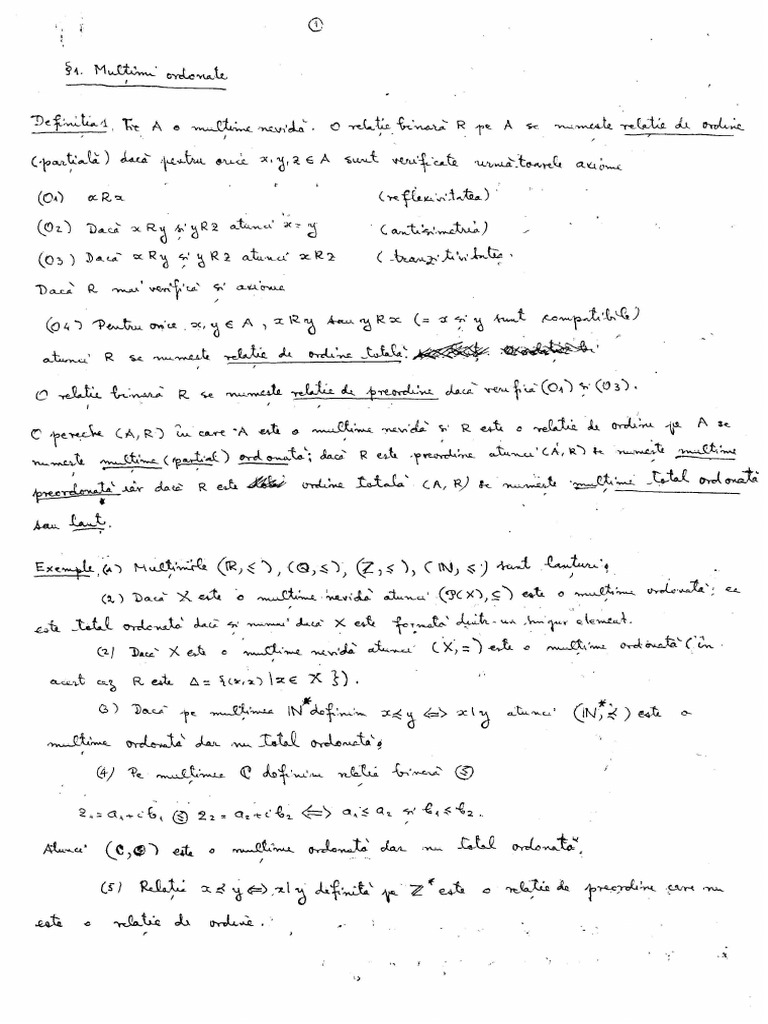 ①
§1. Mulțimi ordonate
Definiția 1. Fie A o mulțime nevidă. O relație binară R pe A se numește relație de ordine
(parțială) dacă pentru orice x, y, z ∈ A sunt verificate următoarele axiome
(O1) xRx (reflexivitatea)
(O2) Dacă xRy și yRz atunci x = y (antisimetria)
(O3) Dacă xRy și yRz atunci xRz (tranzitivitatea.
Dacă R mai verifică și axioma
(O4) Pentru orice x, y ∈ A, xRy sau yRx (= x și y sunt compatibile)
atunci R se numește relație de ordine totală.
O relație binară R se numește relație de preordine dacă verifică (O1) și (O3).
O pereche (A, R) în care A este o mulțime nevidă și R este o relație de ordine pe A se
numește mulțime (parțial) ordonată; dacă R este preordine atunci (A, R) se numește mulțime
preordonată iar dacă R este ordine totală (A, R) se numește mulțime total ordonată
sau lanț.
Exemple. (1) Mulțimile (ℝ, ≤), (ℚ, ≤), (ℤ, ≤), (ℕ, ≤) sunt lanțuri;
(2) Dacă X este o mulțime nevidă atunci (P(X), ⊆) este o mulțime ordonată; ea
este total ordonată dacă și numai dacă X este formată dintr-un singur element.
(2) Dacă X este o mulțime nevidă atunci (X, =) este o mulțime ordonată (în
acest caz R este Δ = {(x, x) | x ∈ X}).
(3) Dacă pe mulțimea ℕ* definim x ≼ y ⟺ x | y atunci (ℕ*, ≼) este o
mulțime ordonată dar nu total ordonată;
(4) Pe mulțimea ℂ definim relația binară Ⓢ
z₁ = a₁ + i b₁ Ⓢ z₂ = a₂ + i b₂ ⟺ a₁ ≤ a₂ și b₁ ≤ b₂.
Atunci (ℂ, Ⓢ) este o mulțime ordonată dar nu total ordonată.
(5) Relația x ≼ y ⟺ x | y definită pe ℤ* este o relație de preordine care nu
este o relație de ordine.